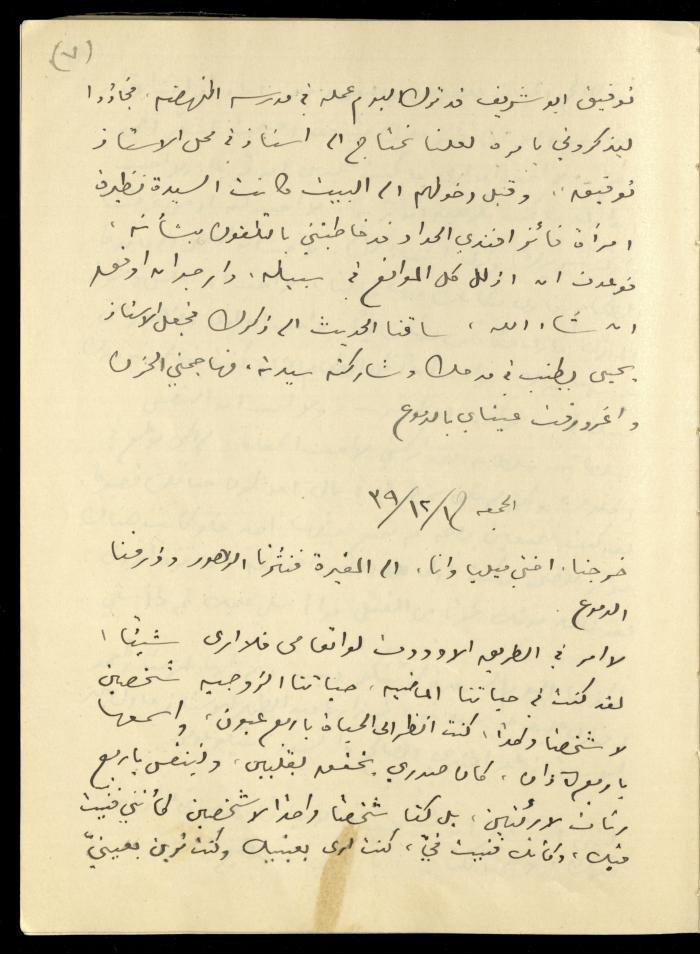 (٧)
توفيق ابو شريف قد ترك اليوم عمله في مدرسه النهضه، فجاؤوا
ليذكروني بامره لعلنا نحتاج الى استاذ في محل الاستاذ
توفيق.. وقبل دخولهم الى البيت كانت السيدة نظيرة
امرأة فائز افندي الحداد قد خاطبتني بالتلفون بشأنه،
فوعدت ان اذلل كل الموانع في سبيله، وارجو ان اوفق
ان شاء الله، ساقنا الحديث الى ذكرك فجعل الاستاذ
يحيى يطنب في مدحك وشاركته سيدته، فهاجمني الحزن
واغرورقت عيناي بالدموع
الجمعه /١٢/٣٩
خرجنا، اختي ميليا وانا، الى المقبرة فنثرنا الزهور وذرفنا
الدموع.
لا امر في الطريق الا ووددت لو اتعامى فلا ارى شيئا!
لقد كنت في حياتنا الماضيه، حياتنا الزوجيه شخصين
لا شخصا واحدا، كنت انظر الى الحياة باربع عيون، واسمعها
باربع آذان، كان صدري يخفق بقلبين، ويتنفس باربع
رئات لا رئتين، بل كنا شخصا واحدا لا شخصين كأنني فنيت
فيك، وكأنك فنيت فيّ، كنت ارى بعينيك وكنت ترين بعينيّ